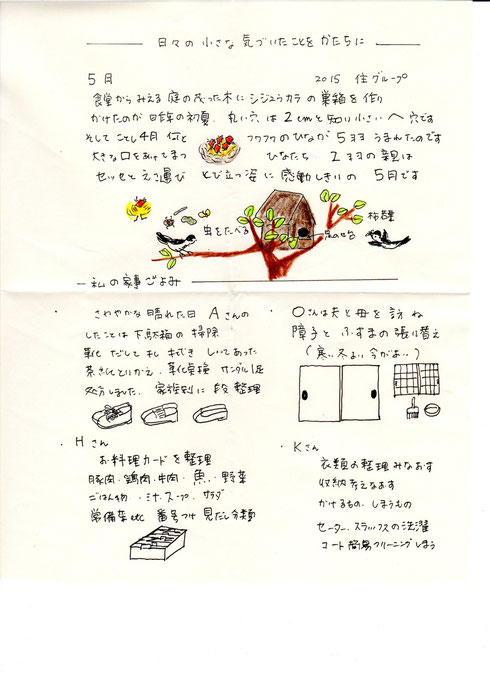 日々の小さな気づいたことをかたちに
5月
2015 住グループ
食堂からみえる庭の茂った木にシジュウカラの巣箱を作り
かけたのが昨年の初夏. 丸い穴は2cmと 小さい 穴です
そしてことし4月 何と フワフワのひなが5ヨヨうまれたのです
大きな口をあけてまつ ひなたち 2ヨヨの親は
セッセとえさ運び とび立つ姿に感動しきりの 5月です
虫をたべる
私の家事ごよみ
・ さわやかな晴れた日 Aさんの
したことは下駄箱の掃除
靴 だして 木ぞき しいてあった
茶 とりかえ. 靴 サンダル1足
処分しました. 家族別に段整理
・ Oさんは夫と母を訪ね
障子とふすまの張り替え
(寒い不よい今がよい)
・ Hさん
お料理カードを整理
豚肉・鶏肉・牛肉・魚・野菜
ごはん物・ スープ・サラダ
常備菜etc 番号つけ見だし分類
・ Kさん
衣類の整理みなおす
収納考えなおす
かけるもの. しまうもの
セーター. スラックスの洗濯
コート 簡易クリーニングしまう